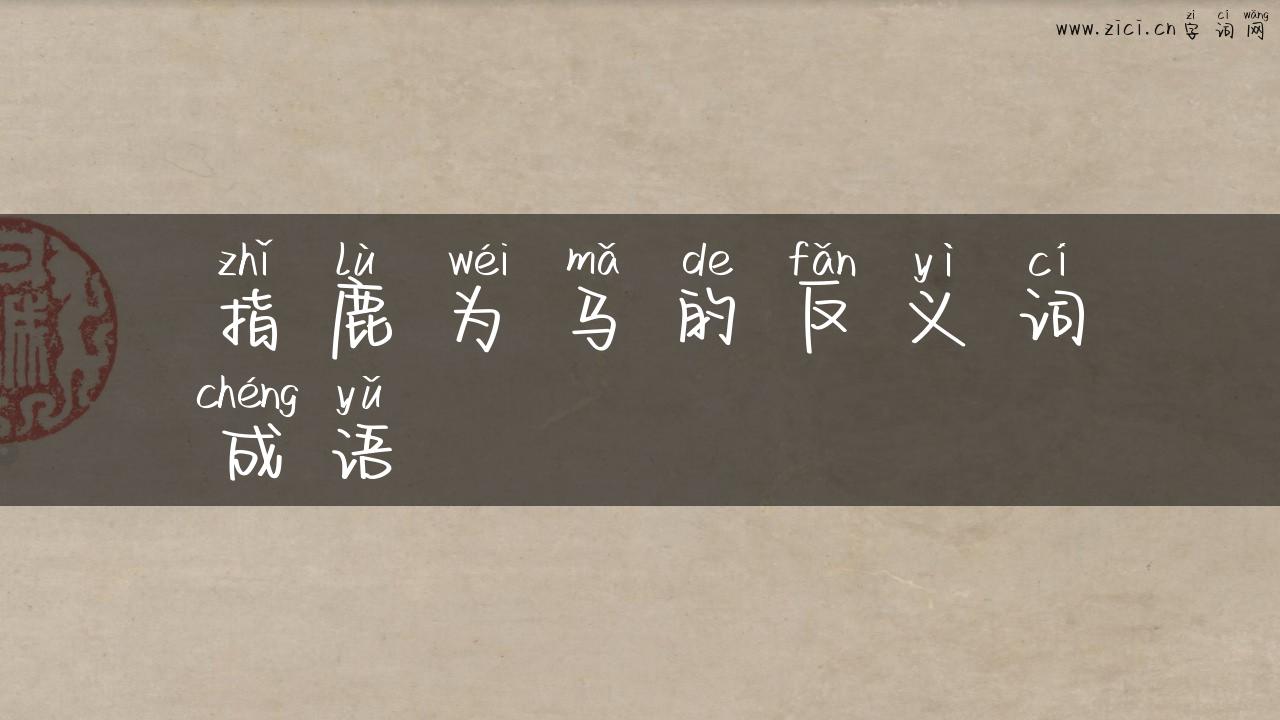 zì cí wǎng
www.zici.cn 字词网
zhǐ lù wéi mǎ de fǎn yì cí
指鹿为马的反义词
chéng yǔ
成语